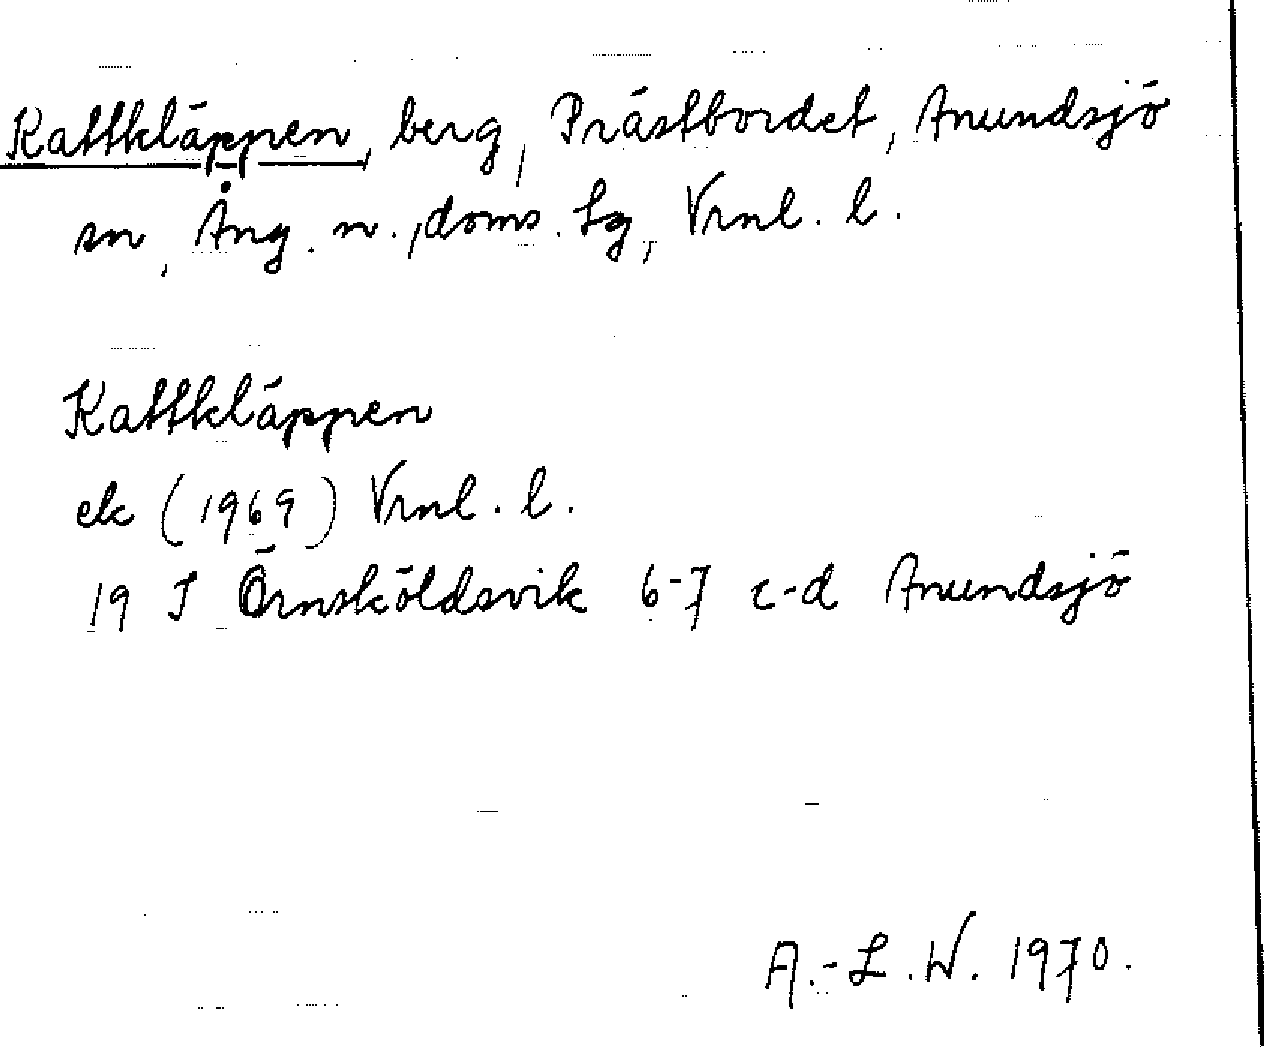 Kattkläppen, berg, Prästbordet, Anundsjö
sn, Ång. n., doms. lg, Vrnl. l.
Kattkläppen
ek (1969) Vrnl. l.
19 J Örnsköldsvik 6-7 c-d Anundsjö
A.-L.W. 1970.